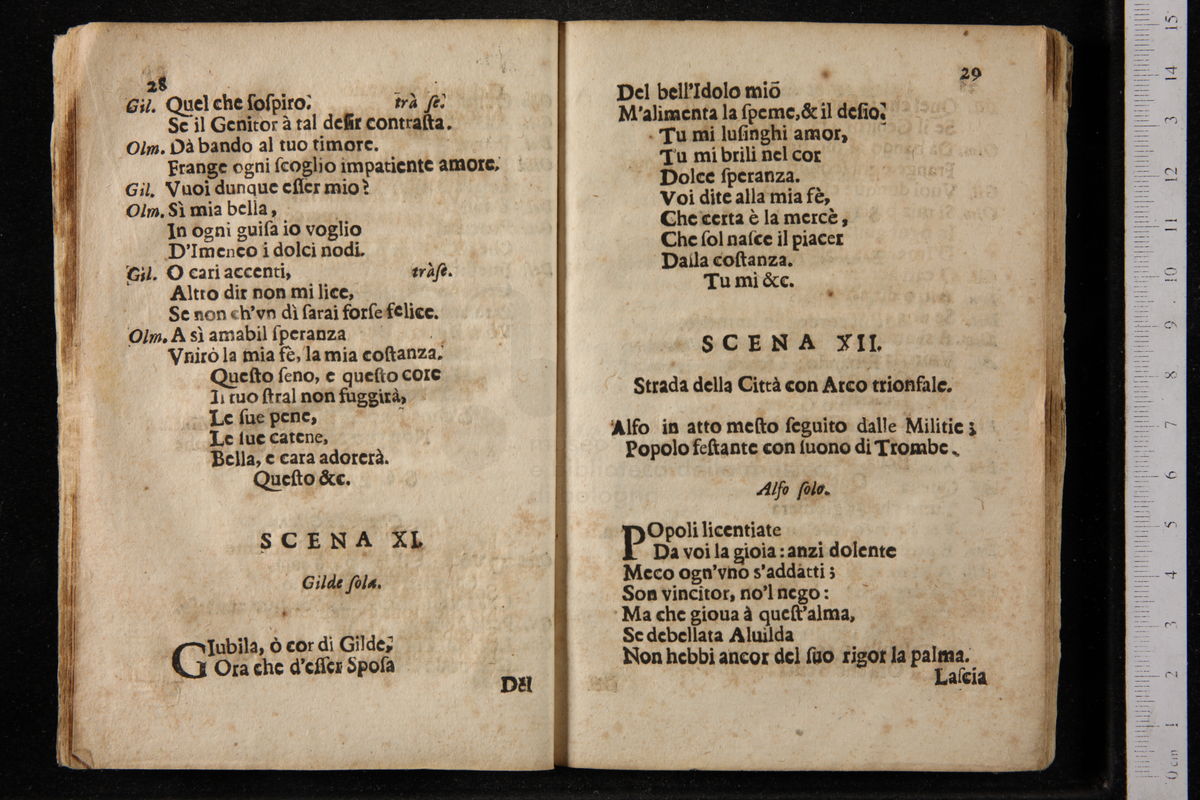 28
Gil. Quel che ſoſpiro. trà ſe.
Se il Genitor à tal deſir contraſta.
Olm. Dà bando al tuo timore.
Frange ogni ſcoglio impatiente amore.
Gil. Vuoi dunque eſſer mio?
Olm. Sì mia bella,
In ogni guiſa io voglio
D'Imeneo i dolci nodi.
Gil. O cari accenti, tràſe.
Altro dir non mi lice,
Se non ch'vn dì ſarai forſe felice.
Olm. A sì amabil ſperanza
Vnirò la mia fè, la mia coſtanza.
Queſto ſeno, e queſto core
Il tuo ſtral non fuggirà,
Le ſue pene,
Le ſue catene,
Bella, e cara adorerà.
Queſto &c.
SCENA XI.
Gilde ſola.
GIubila, ò cor di Gilde,
Ora che d'eſſer Spoſa
Del
29
Del bell'Idolo mio
M'alimenta la ſpeme, & il deſio.
Tu mi luſinghi amor,
Tu mi brili nel cor
Dolce ſperanza.
Voi dite alla mia fè,
Che certa è la mercè,
Che ſol naſce il piacer
Dalla coſtanza.
Tu mi &c.
SCENA XII.
Strada della Città con Arco trionfale.
Alfo in atto meſto ſeguito dalle Militie;
Popolo feſtante con ſuono di Trombe.
Alfo ſolo.
POpoli licentiate
Da voi la gioia: anzi dolente
Meco ogn'vno s'addatti;
Son vincitor, no'l nego:
Ma che gioua à queſt'alma,
Se debellata Aluilda
Non hebbi ancor del ſuo rigor la palma.
Laſcia
15
14
3
12
11
10
9
8
7
6
5
4
3
2
1
0 cm